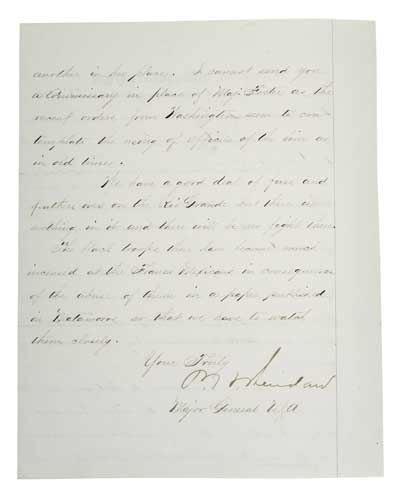 another in his place. I cannot send you
a Commissary in place of Maj. Foster as the
recent orders from Washington seem to con-
template the using of officers of the line as
in old times.
We have a good deal of fuss and
feathers over on the Rio Grande but there is
nothing in it and there will be no fight there.
The black troops there have become much
incensed at the Franco Mexicans in consequence
of the abuse of them in a paper published
in Matamoras so that we have to watch
them closely.
Yours Truly
P H Sheridan
Major General USA